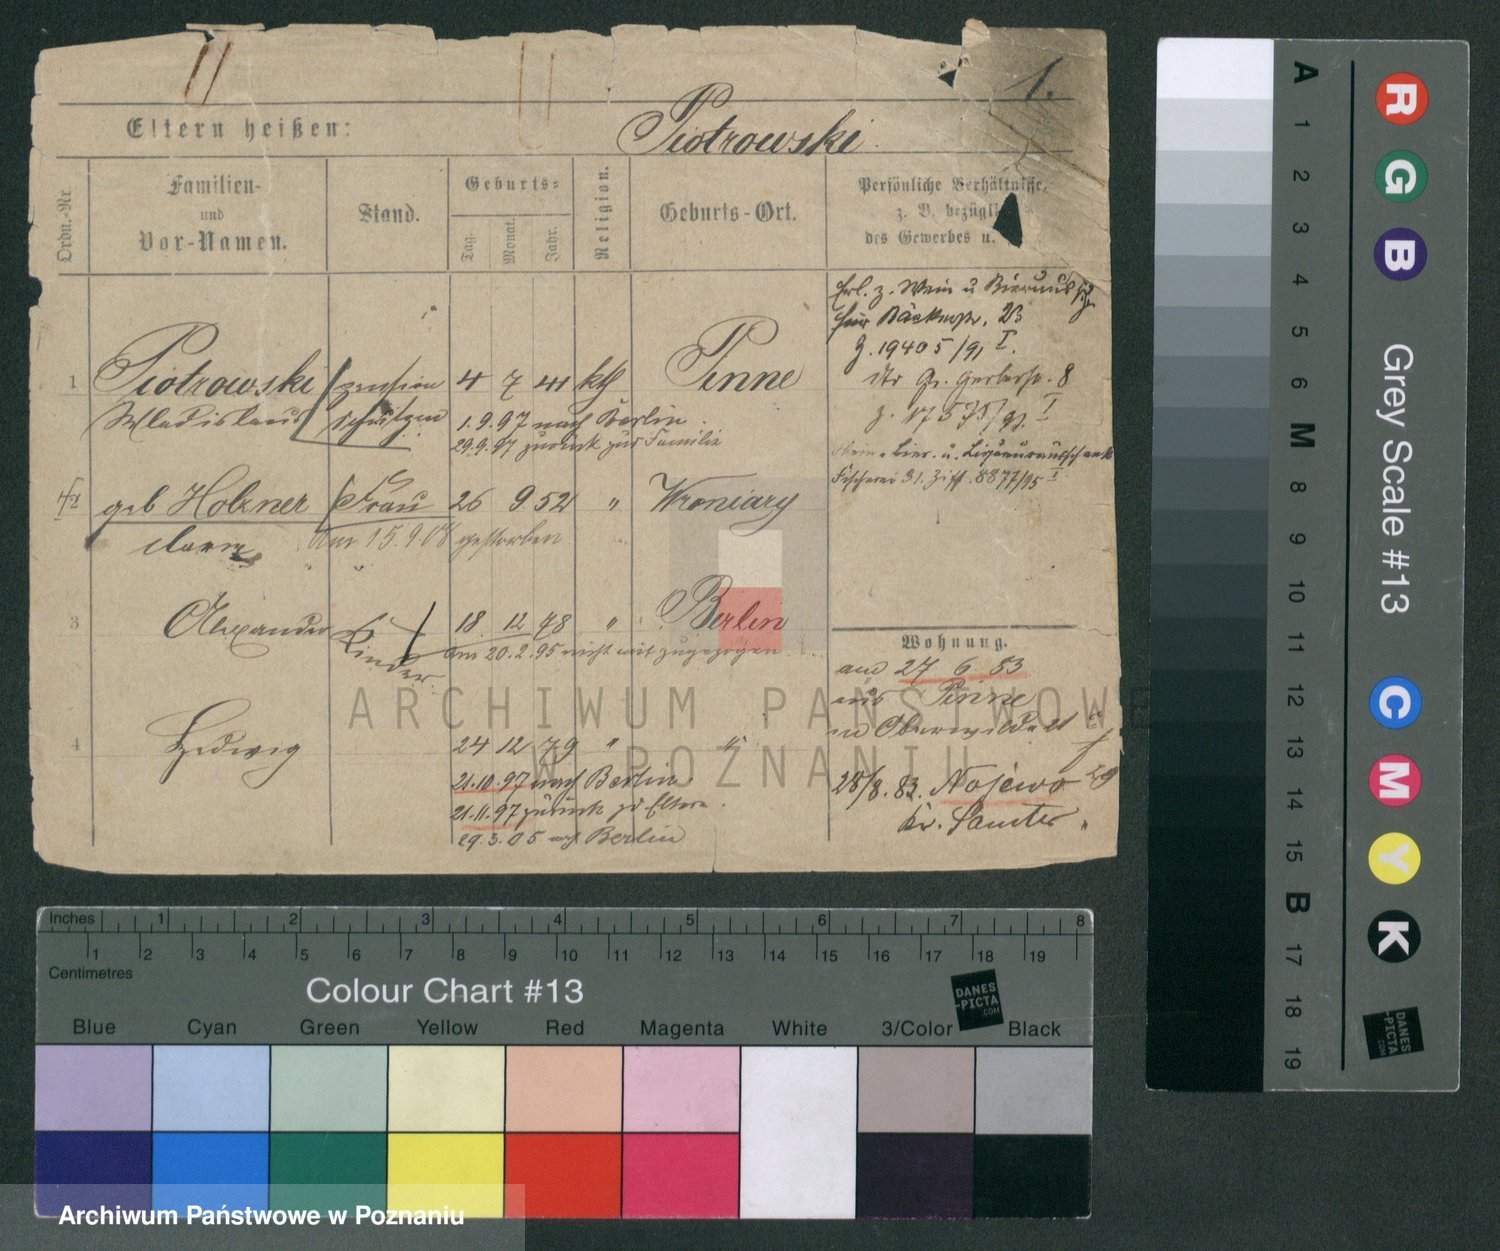 1.
Eltern heißen:
Piotrowski
Ordn.-Nr.
Familien-
und
Vor-Namen.
Stand.
Geburts-
Tag.
Monat.
Jahr.
Religion.
Geburts-Ort.
Persönliche Verhältnisse,
z. B. bezügli
des Gewerbes u.
Erl. z. Wein u Bierausch
für Bäckerstr. 23
J. 19405/91 I.
Gr. Gerberstr. 8
z. 17535/93 I
Fischerei 31. 8877/95 I
1 Piotrowski 4 7 41 kth Pinne
Wladislaus
1.9.97 nach Berlin.
29.9.97 zurück zur Familie
2 geb Holzner Frau 26 9 52 " Wroniary
Am 15.9.08 gestorben
3 Alexander Kinder 18 12 78 " Berlin
am 20.2.95 nicht mit zugezogen
4 Hedwig 24 12 79 " "
21.10.97 nach Berlin
21.11.97 zurück zu Eltern.
29.3.05 nach Berlin
Wohnung.
am 27 6 83
aus Pinne
28/8. 83. Nojewo
Kr. Samter
ARCHIWUM PAŃSTWOWE
W POZNANIU
Inches 1 2 3 4 5 6 7 8
1 2 3 4 5 6 7 8 9 10 11 12 13 14 15 16 17 18 19
Centimetres
Colour Chart #13
DANES
-PICTA
.COM
Blue Cyan Green Yellow Red Magenta White 3/Color Black
Archiwum Państwowe w Poznaniu
A 1 2 3 4 5 6 M 8 9 10 11 12 13 14 15 B 17 18 19
R G B
Grey Scale #13
C M Y K
DANES
-PICTA
.COM